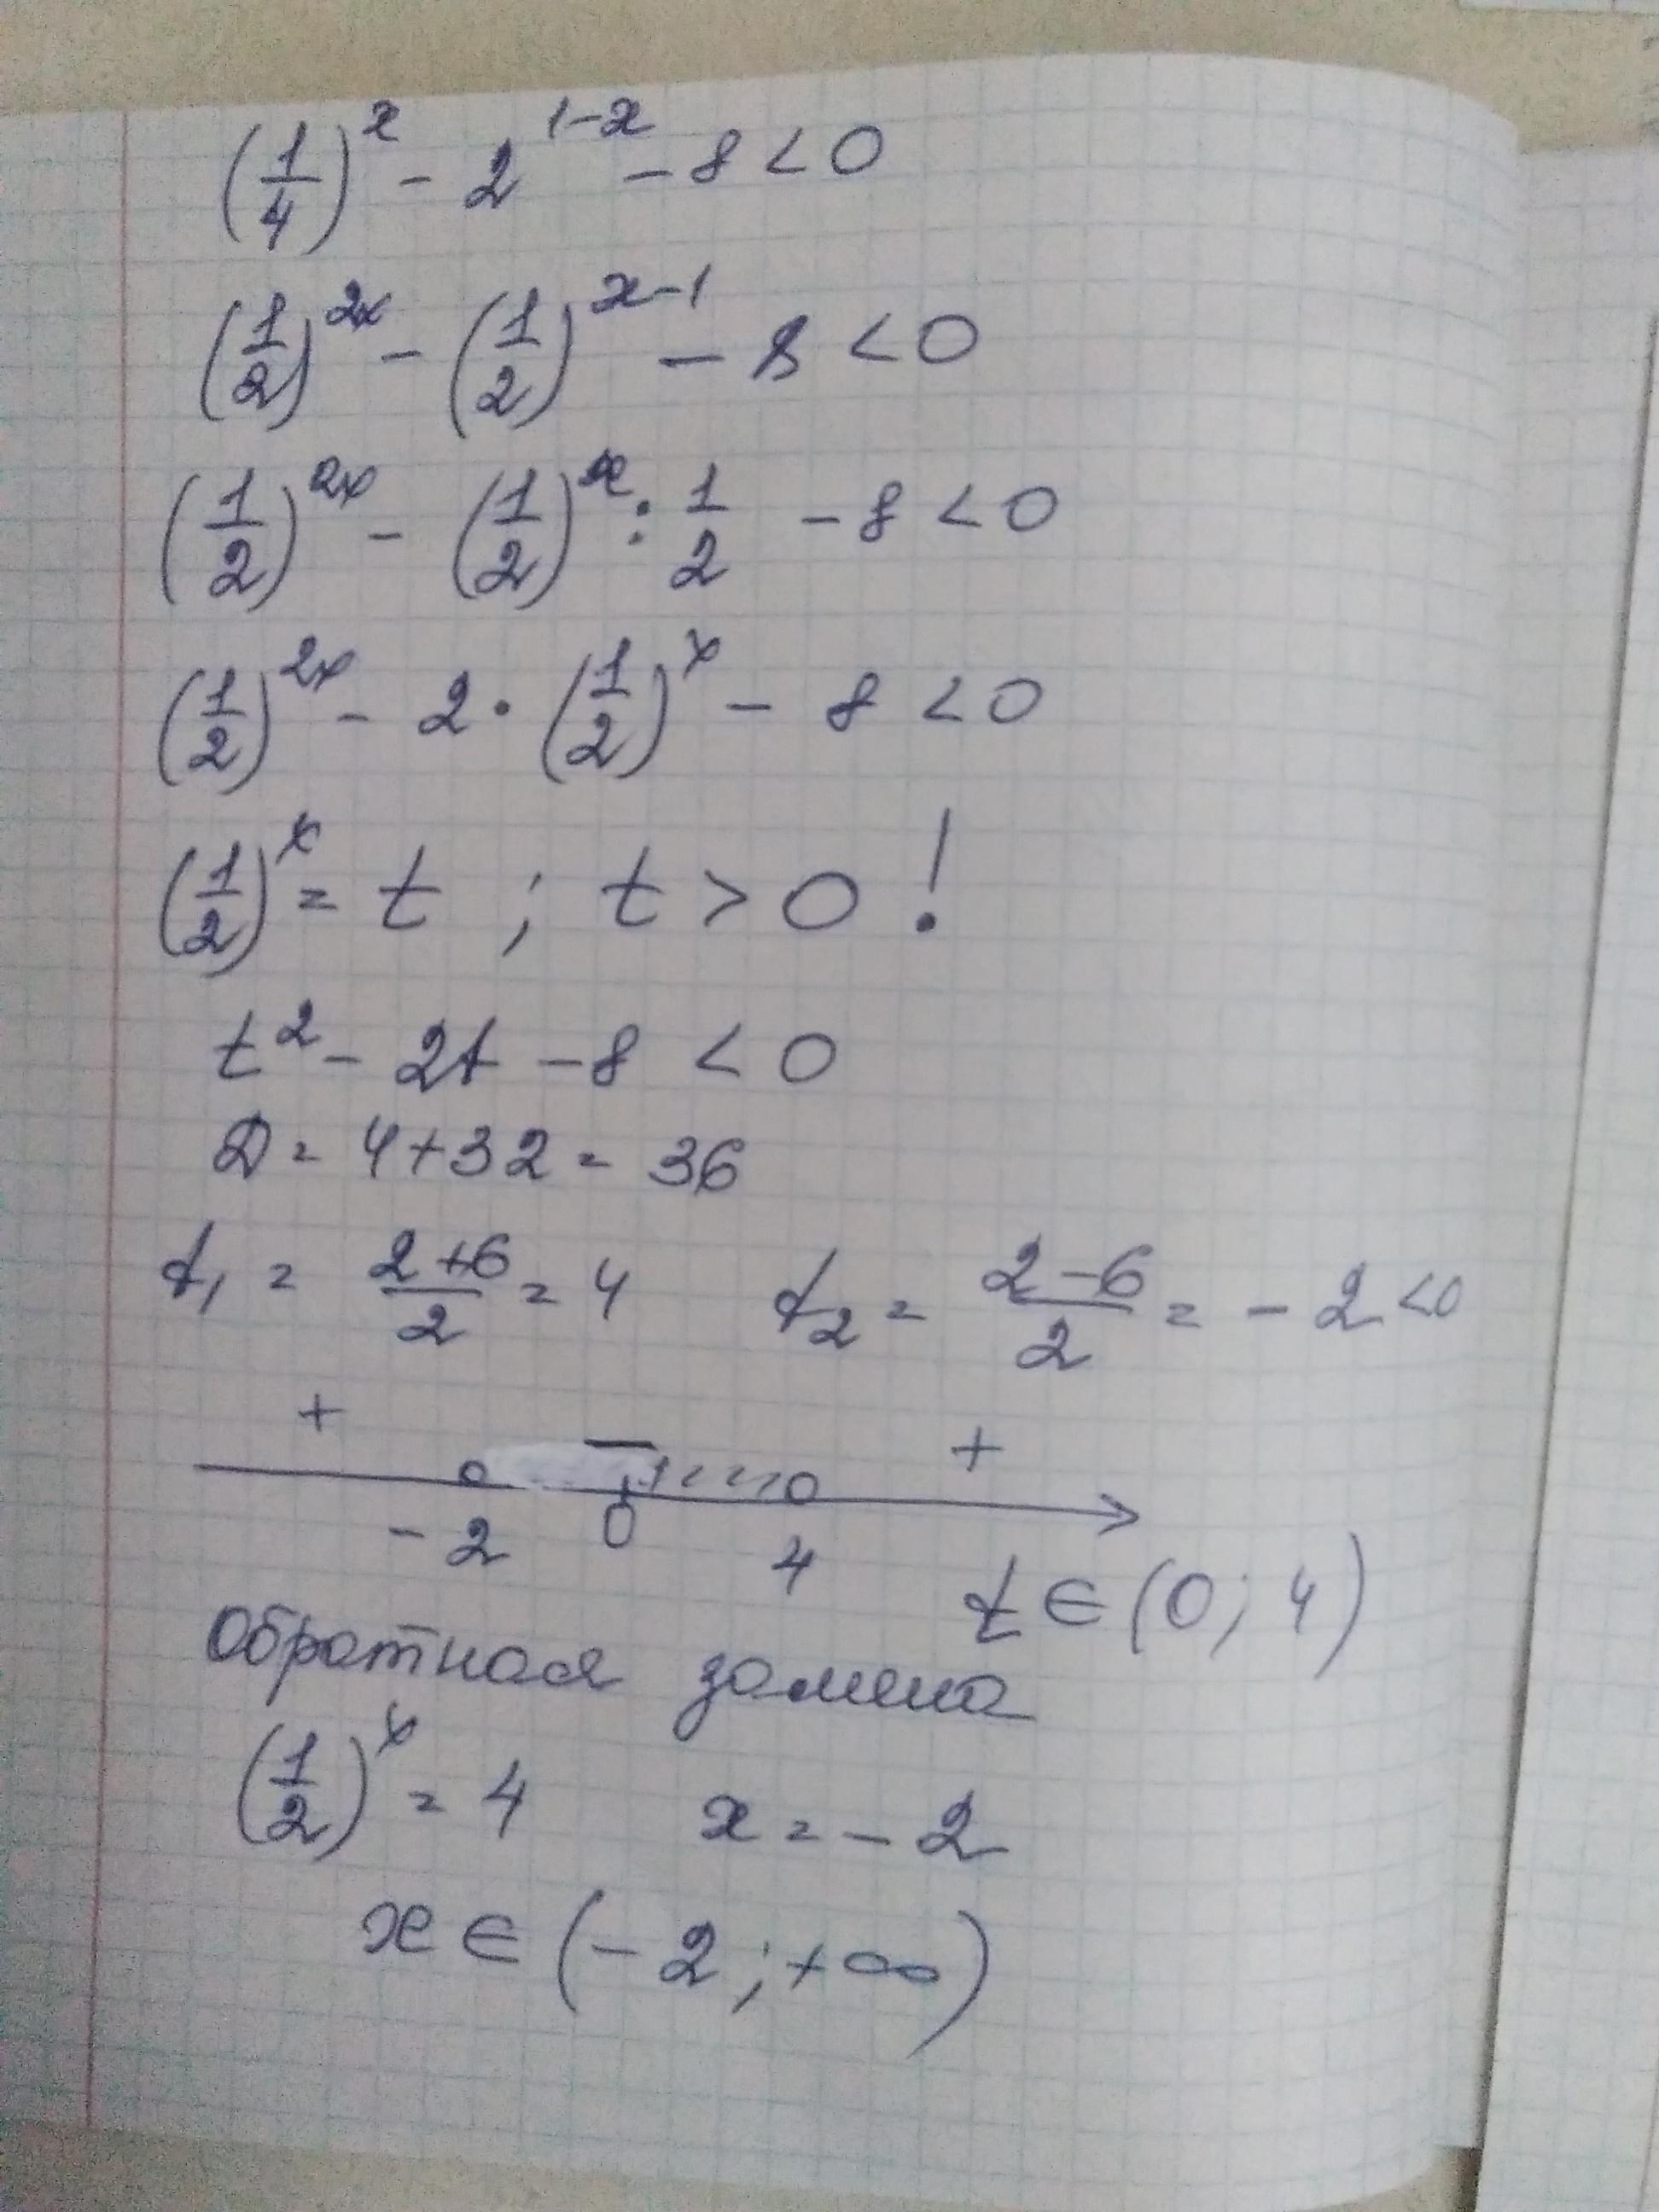 (1/4)^x - 2^(1-x) - 8 < 0
(1/2)^(2x) - (1/2)^(x-1) - 8 < 0
(1/2)^(2x) - (1/2)^x : 1/2 - 8 < 0
(1/2)^(2x) - 2 · (1/2)^x - 8 < 0
(1/2)^x = t ; t > 0 !
t² - 2t - 8 < 0
D = 4 + 32 = 36
t₁ = (2+6)/2 = 4 t₂ = (2-6)/2 = -2 < 0
+ − +
-2 0 4
t ∈ (0; 4)
Обратная замена
(1/2)^x = 4 x = -2
x ∈ (-2; +∞)